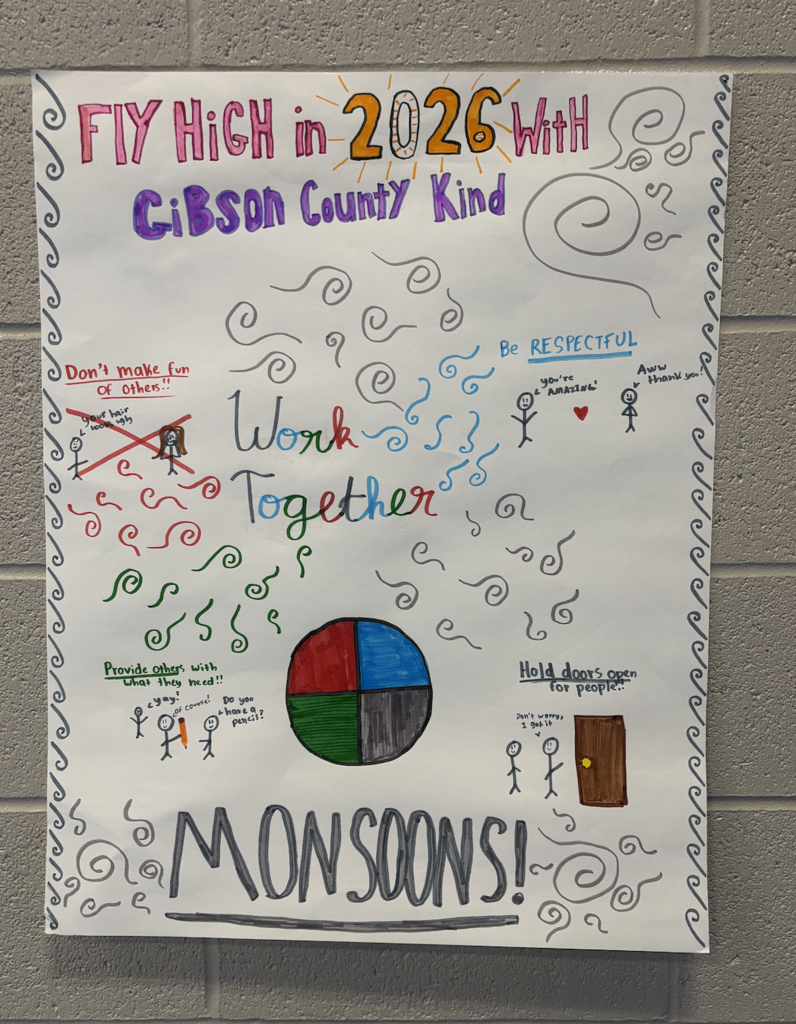 FlY HiGH in 2026 WitH
GiBSon County Kind
Don't make fun
of others!!
your hair
looks ugly
Be RESPECTFUL
you're
AMAZING!
Aww
thank you!
Work
Together
Provide others with
what they need!!
yay!
of course!
Do you
have a
pencil?
Hold doors open
for people!!
Don't worry,
I got it
MONSOONS!